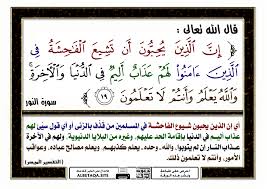 قال الله تعالى :
﴿ إِنَّ الَّذِينَ يُحِبُّونَ أَن تَشِيعَ الْفَاحِشَةُ فِى
الَّذِينَ ءَامَنُوا لَهُمْ عَذَابٌ أَلِيمٌ فِى الدُّنْيَا وَالْآخِرَةِ
وَاللَّهُ يَعْلَمُ وَأَنتُمْ لَا تَعْلَمُونَ ١٩ ﴾
سورة النور
أي إن الذين يحبون شيوع الفاحشة في المسلمين من قذف بالزنى أو أي قول سيّئ لهم
عذاب أليم في الدنيا بإقامة الحد عليهم، وغيره من البلايا الدنيوية، ولهم في الآخرة
عذاب النار إن لم يتوبوا، والله -وحده- يعلم كذبهم، ويعلم مصالح عباده، وعواقب
الأمور، وأنتم لا تعلمون ذلك.
[التفسير الميسر]
ALBETAQA.SITE